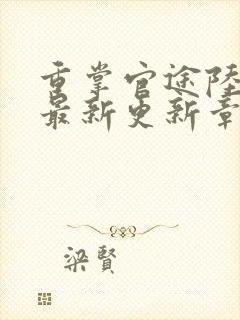 重掌官途陸
最新更新章
梁賢